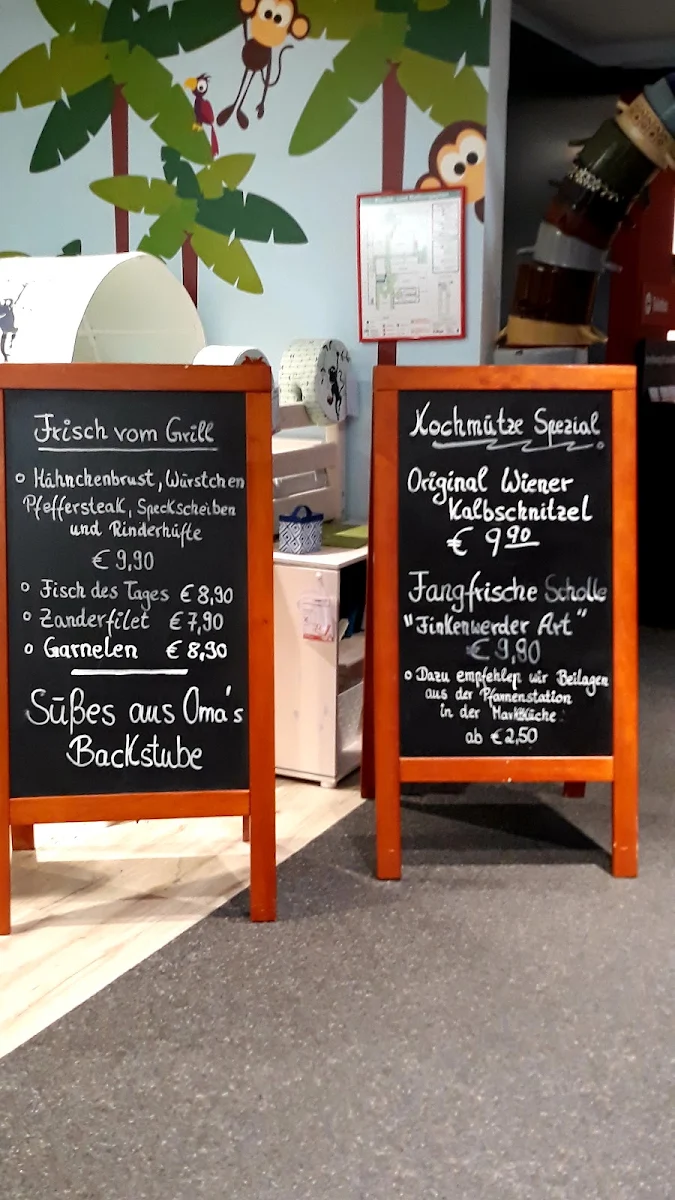 Frisch vom Grill
o Hähnchenbrust, Würstchen
Pfeffersteak, Speckscheiben
und Rinderhüfte
€ 9,90
o Fisch des Tages € 8,90
o Zanderfilet € 7,90
o Garnelen € 8,90
Süßes aus Oma's
Backstube
Kochmütze Spezial
Original Wiener
Kalbschnitzel
€ 9 90
Fangfrische Scholle
"Finkenwerder Art"
€ 9,90
o Dazu empfehlen wir Beilagen
aus der Pfannenstation
in der Marktküche
ab € 2,50